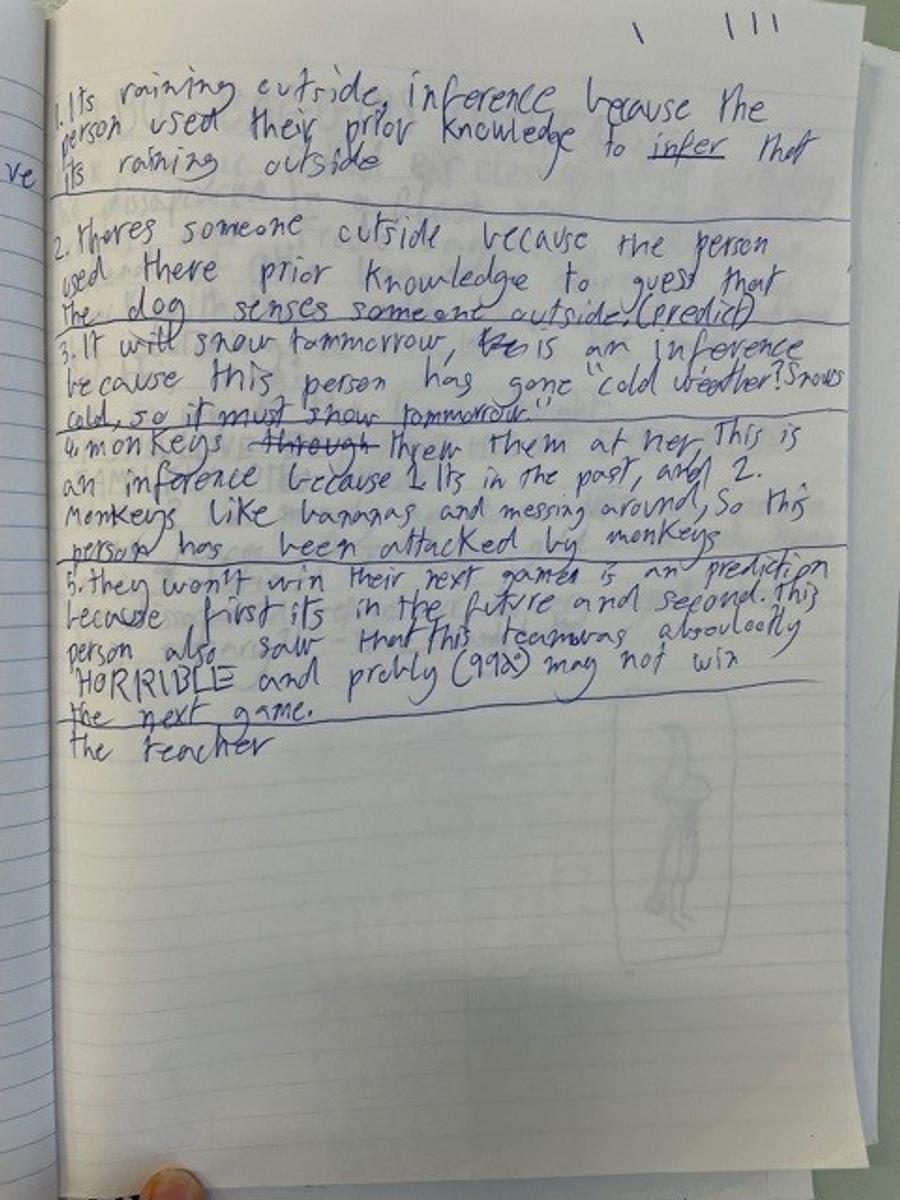 ve
1. Its raining outside, inference because the
person used their prior knowledge to infer that
its raining outside
2. theres someone outside because the person
used there prior knowledge to guess that
the dog senses someone outside. (predict)
3. It will snow tommorrow, is an inference
because this person has gone "cold weather? Snows
cold, so it must snow tommorrow."
4. monkeys through threw them at her, This is
an inference because 1. Its in the past, and 2.
Monkeys like bananas and messing around, So this
person has been attacked by monkeys
5. they won't win their next games is an prediction
because first its in the future and second. this
person also saw that this team was absoulootly
HORRIBLE and probly (99%) may not win
the next game.
the teacher